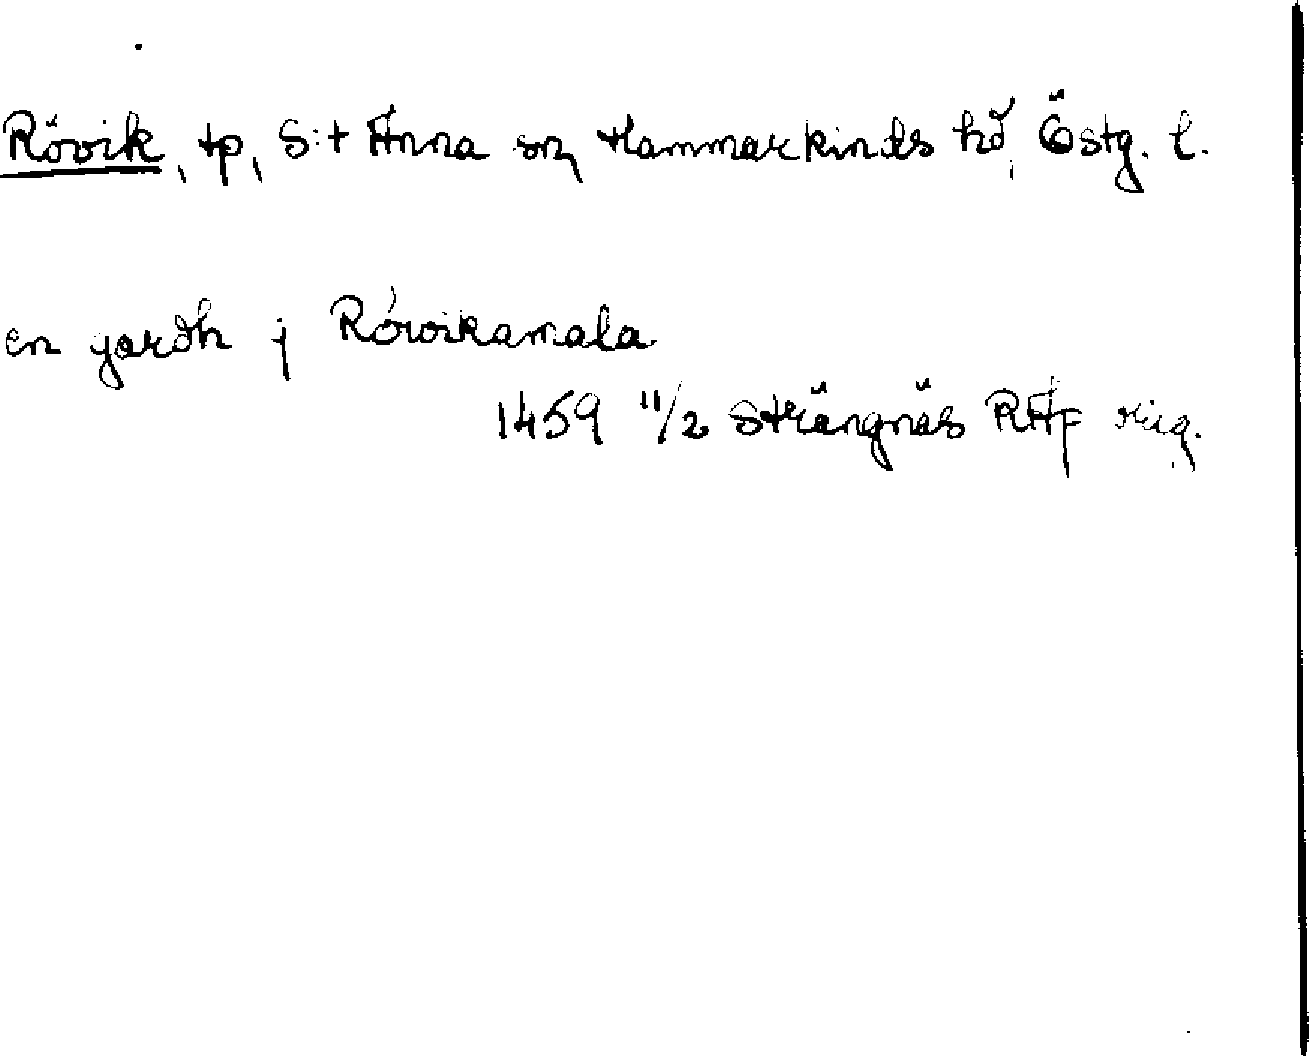 Rövik, tp, S:t Anna sn, Hammarkinds hd, Östg. l.
en gardh j Rövikamala
1459 11/2 Strängnäs RAp